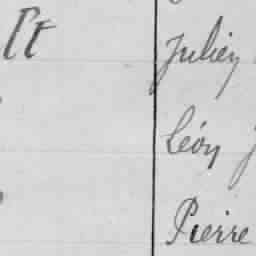 Julien
Léon
Pierre